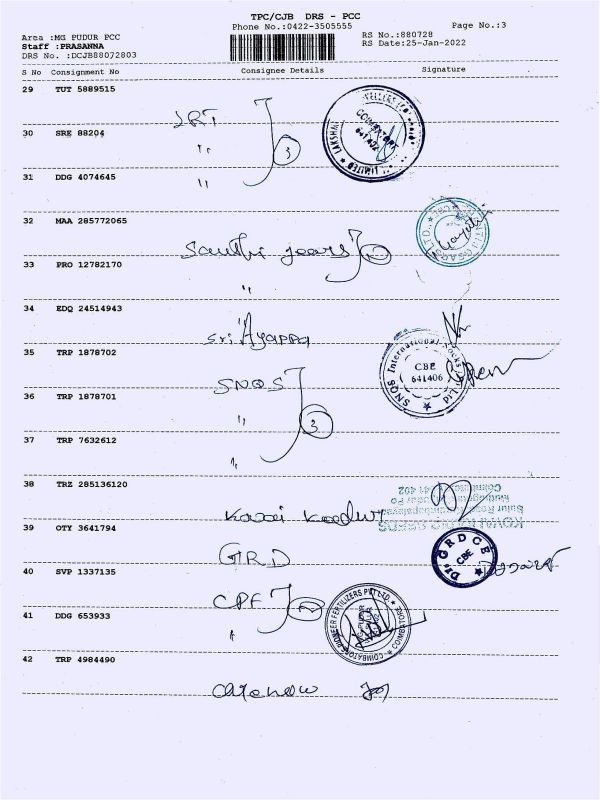 TPC/CJB DRS - PCC
Phone No.:0422-3505555
Page No.:3
Area :MG PUDUR PCC
RS No.:880728
Staff :PRASANNA
RS Date:25-Jan-2022
DRS No. :DCJB88072803
S No Consignment No Consignee Details Signature
29 TUT 5889515
LRT
30 SRE 88204
" 3
31 DDG 4074645
"
LIMITED ★ LAKSHMI
COIMBATORE
32 MAA 285772065
Santhi gears 2
33 PRO 12782170
"
34 EDQ 24514943
Sri Ayappa
35 TRP 1878702
SNQS
SNQS International Socks Ltd
CBE
641406
36 TRP 1878701
" 3
37 TRP 7632612
"
38 TRZ 285136120
39 OTY 3641794
GRD
Dr. G R D C E
CBE
40 SVP 1337135
CPF 2
41 DDG 653933
"
COIMBATORE PIONEER FERTILIZERS PVT LTD. ★ COIMBATORE
42 TRP 4984490